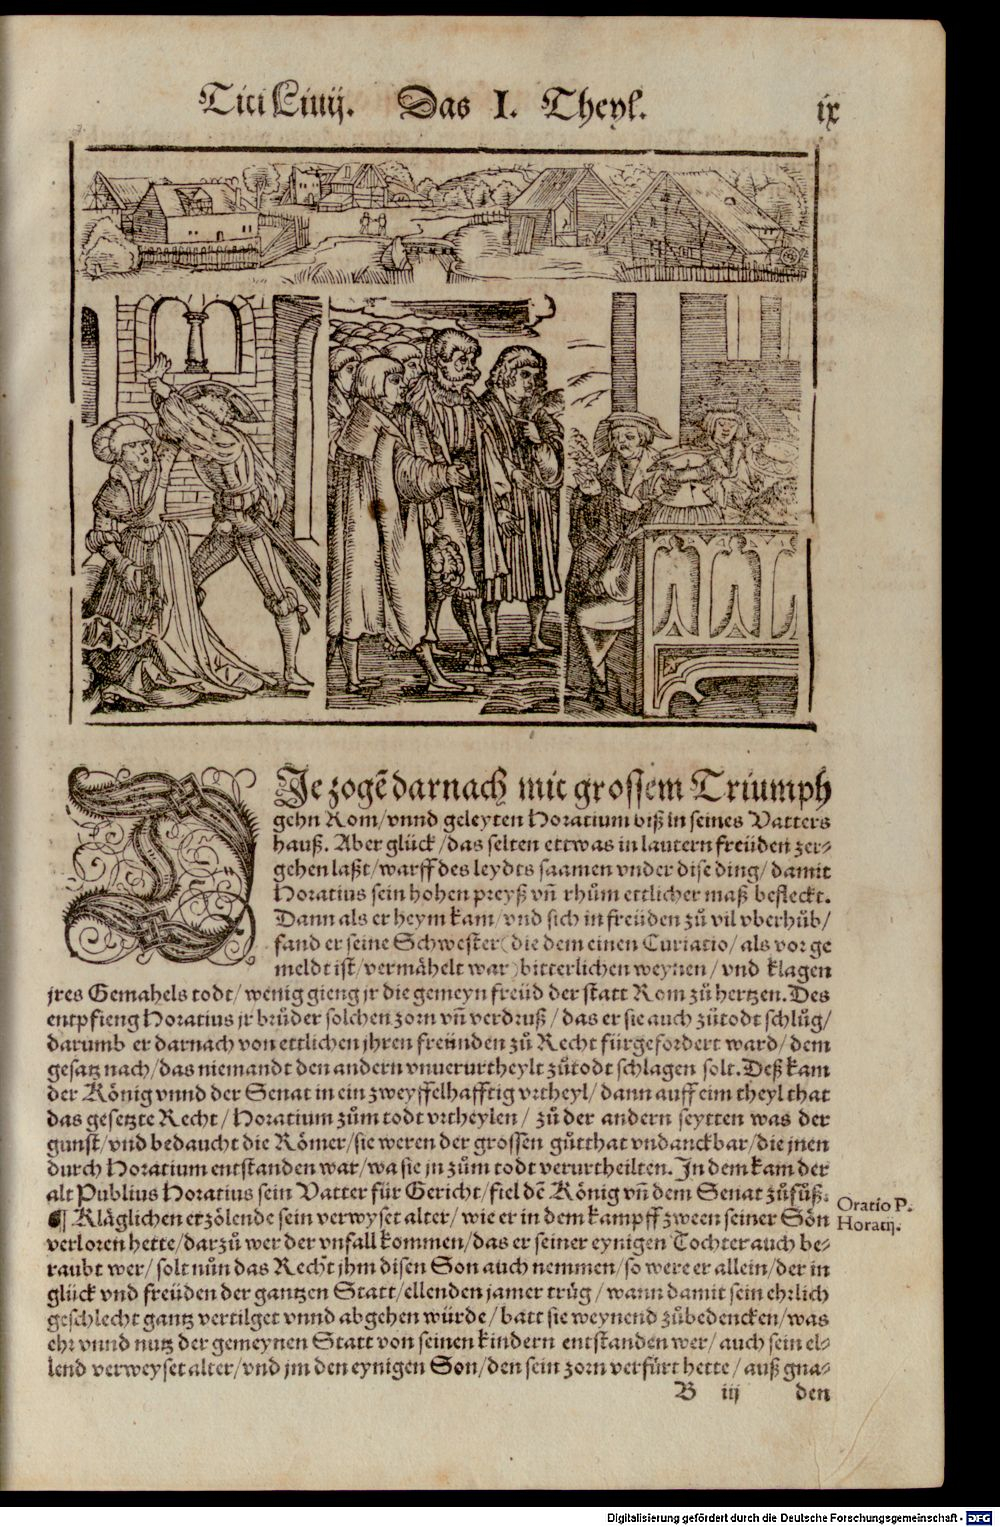 Titi Liuij. Das I. Theyl. ix
SIe zogē darnach mit grossem Triumph
gehn Rom/vnnd geleyten Horatium biß in seines Vatters
hauß. Aber glück/das selten ettwas in lautern freüden zer-
gehen laßt/warff des leydts saamen vnder dise ding/damit
Horatius sein hohen preyß vñ rhům ettlicher maß befleckt.
Dann als er heym kam/vnd sich in freüden zů vil vberhüb/
fand er seine Schwester (die dem einen Curiatio/als vor ge
meldt ist/vermähelt war) bitterlichen weynen/vnd klagen
jres Gemahels todt/wenig gieng jr die gemeyn freüd der statt Rom zů hertzen. Des
entpfieng Horatius jr brůder solchen zorn vñ verdruß/das er sie auch zůtodt schlůg/
darumb er darnach von ettlichen jhren freünden zů Recht fürgefordert ward/dem
gesatz nach/das niemandt den andern vnuerurtheylt zůtodt schlagen solt. Deß kam
der König vnnd der Senat in ein zweyffelhafftig vrtheyl/dann auff eim theyl that
das gesetzte Recht/Horatium zům todt vrtheylen/zů der andern seytten was der
gunst/vnd bedaucht die Römer/sie weren der grossen gůtthat vndanckbar/die jnen
durch Horatium entstanden war/wa sie jn zům todt verurtheilten. In dem kam der
alt Publius Horatius sein Vatter für Gericht/fiel dē König vñ dem Senat zůfůß.
¶ Kläglichen erzölende sein verwyset alter/wie er in dem kampff zween seiner Sön
verloren hette/darzů wer der vnfall kommen/das er seiner eynigen Tochter auch be-
raubt wer/solt nůn das Recht jhm disen Son auch nemmen/so were er allein/der in
glück vnd freüden der gantzen Statt/ellenden jamer trüg/wann damit sein ehrlich
geschlecht gantz vertilget vnnd abgehen würde/batt sie weynend zůbedencken/was
ehr vnnd nutz der gemeynen Statt von seinen kindern entstanden wer/auch sein el-
lend verweyset alter/vnd jm den eynigen Son/den sein zorn verfürt hette/auß gna-
B iij den
Oratio P.
Horatij.
Digitalisierung gefördert durch die Deutsche Forschungsgemeinschaft - DFG